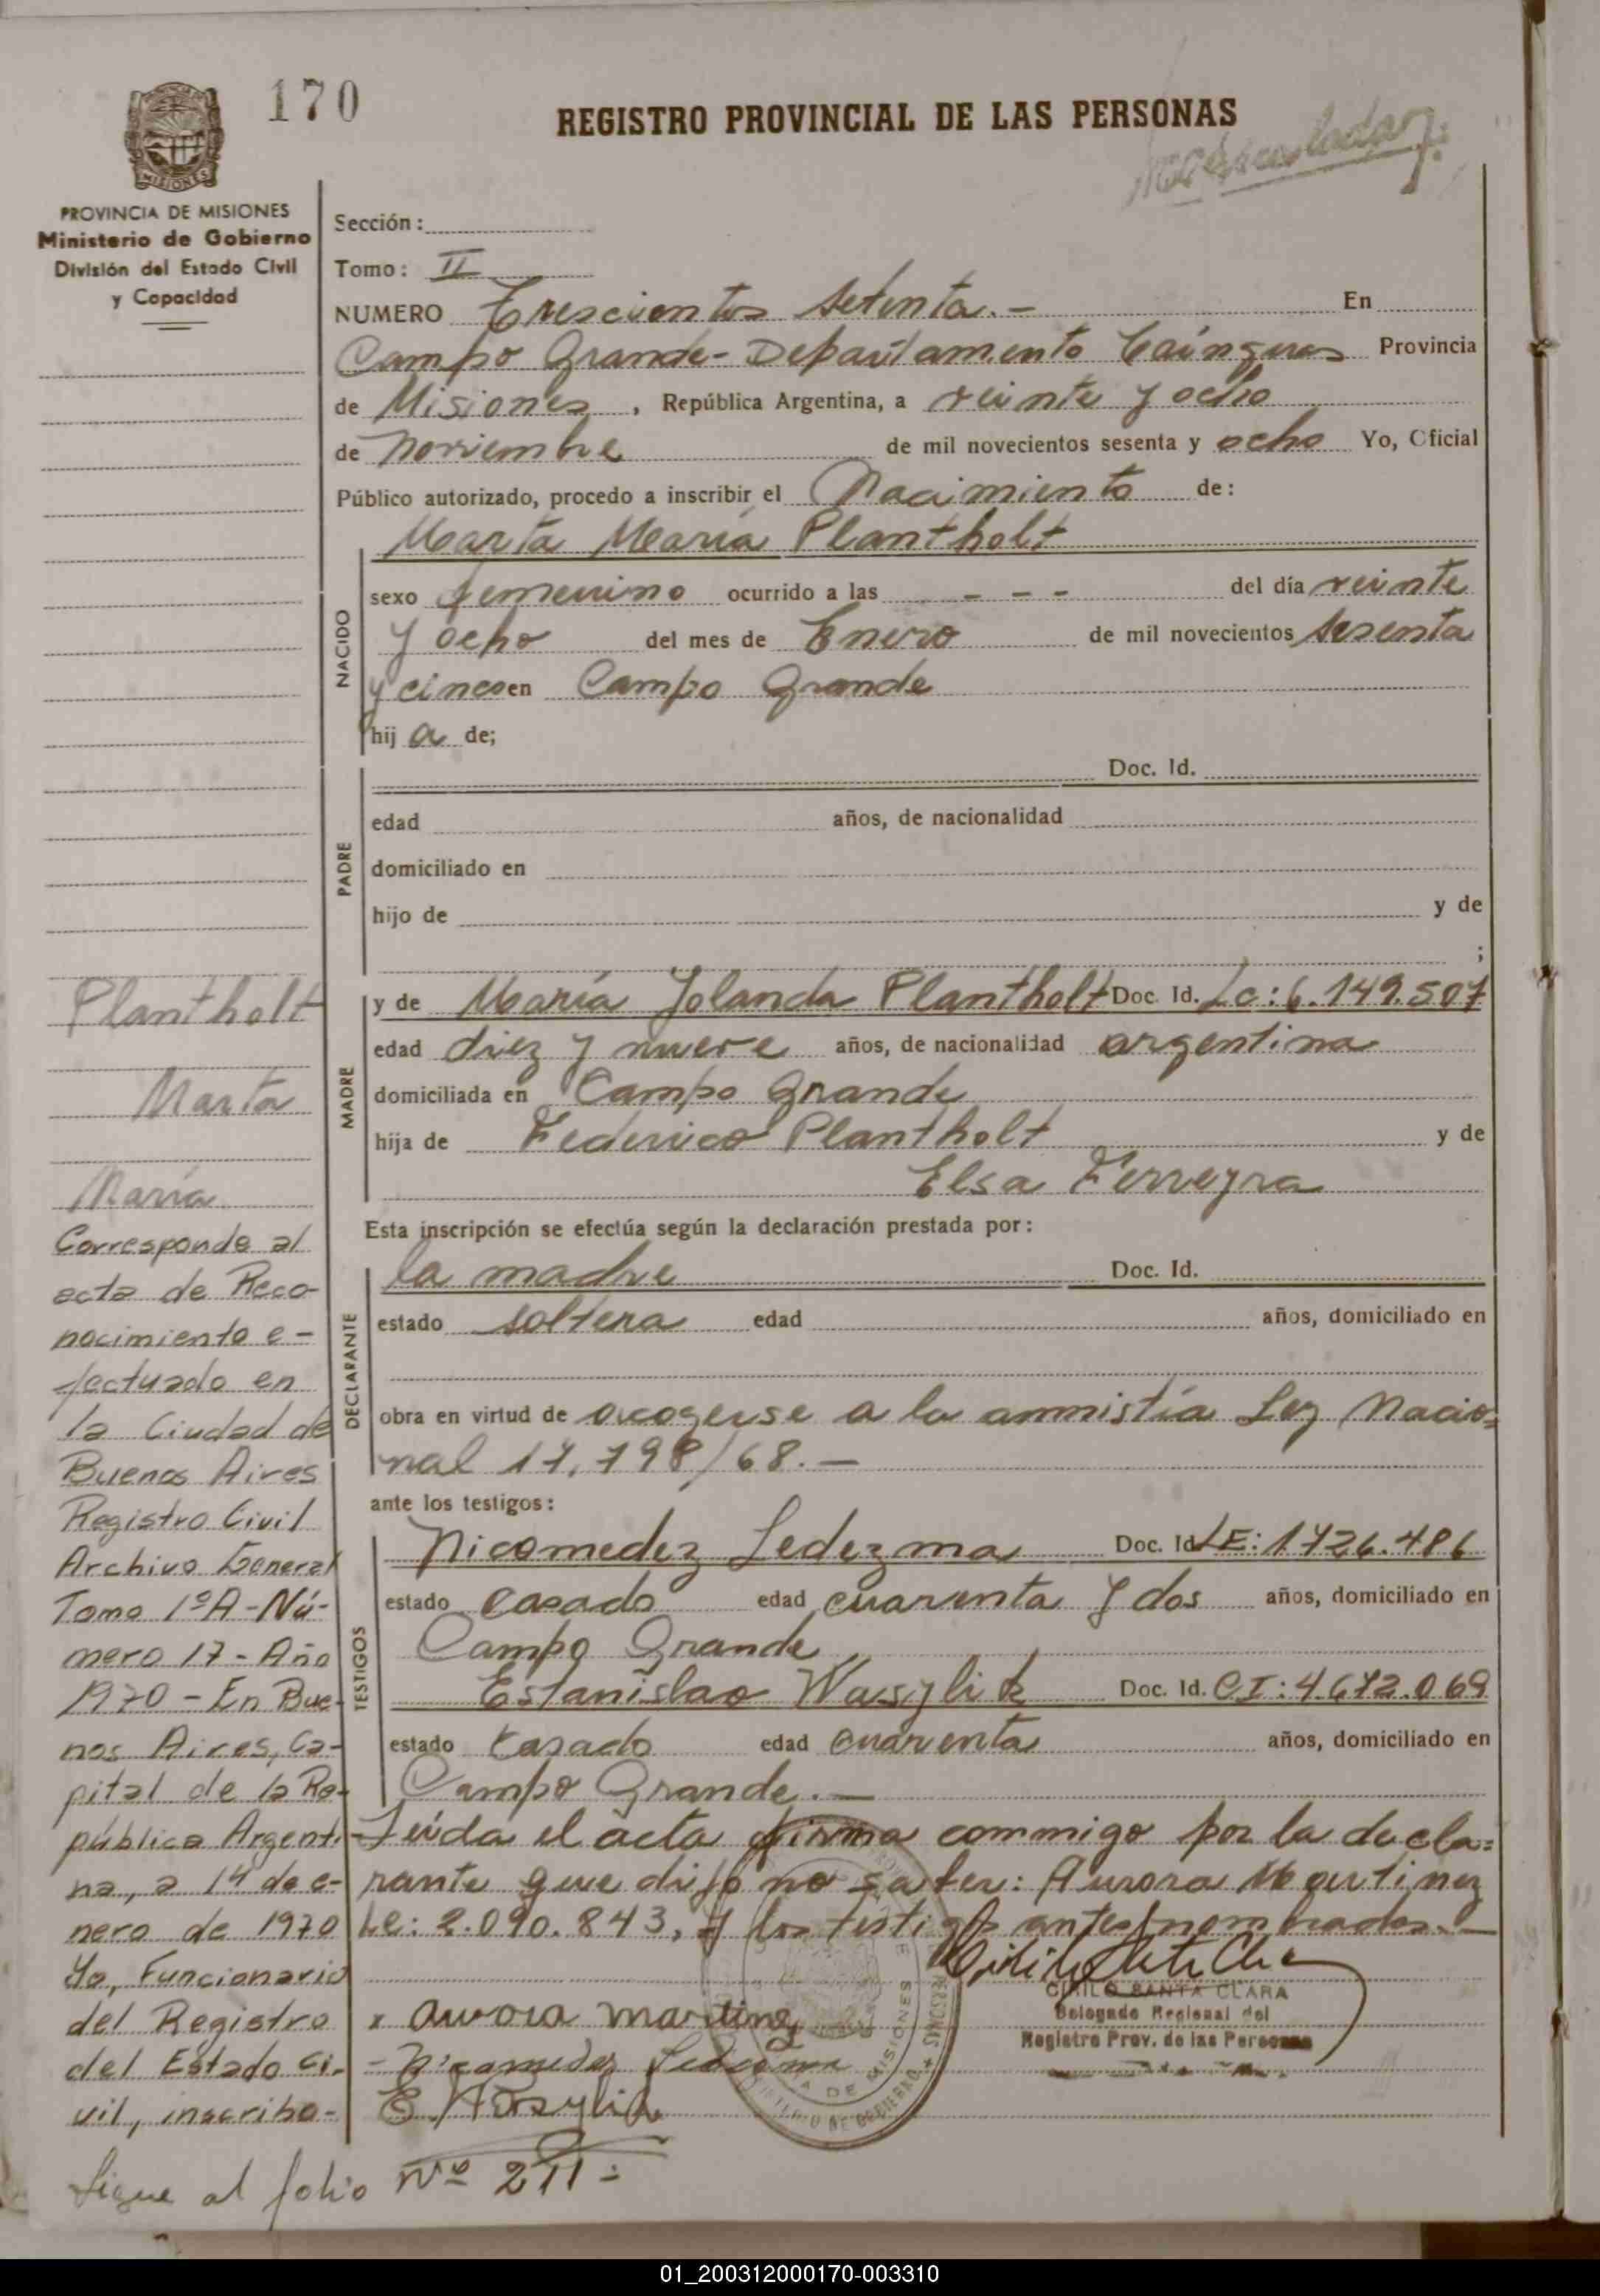 170
REGISTRO PROVINCIAL DE LAS PERSONAS
MISIONES
PROVINCIA DE MISIONES
Ministerio de Gobierno
División del Estado Civil
y Capacidad
Sección:
Tomo: II
NUMERO Trescientos setenta.- En
Campo Grande - Departamento Cainguas Provincia
de Misiones, República Argentina, a veinte y ocho
de Noviembre de mil novecientos sesenta y ocho Yo, Oficial
Público autorizado, procedo a inscribir el Nacimiento de:
Marta María Plantholt
NACIDO
sexo femenino ocurrido a las - - - del día veinte
y ocho del mes de Enero de mil novecientos sesenta
y cinco en Campo Grande
hija de;
PADRE
Doc. Id.
edad años, de nacionalidad
domiciliado en
hijo de y de
;
MADRE
y de María Yolanda Plantholt Doc. Id. Lc: 6.149.507
edad diez y nueve años, de nacionalidad argentina
domiciliada en Campo Grande
hija de Federico Plantholt y de
Elsa Ferreyra
Esta inscripción se efectúa según la declaración prestada por:
DECLARANTE
la madre Doc. Id.
estado soltera edad años, domiciliado en
obra en virtud de acogerse a la amnistía Ley Nacio=
nal 17.798/68.-
ante los testigos:
TESTIGOS
Nicomedez Ledezma Doc. Id LE: 1726.486
estado casado edad cuarenta y dos años, domiciliado en
Campo Grande
Estanislao Wasylik Doc. Id. CI: 4.672.069
estado casado edad cuarenta años, domiciliado en
Campo Grande.-
Leída el acta firma commigo por la decla=
rante que dijo no saber: Aurora Martinez
Lc: 2.090.843, y los testigos antes nombrados.-
CIRILO SANTA CLARA
Delegado Regional del
Registro Prov. de las Personas
x aurora martinez
- Nicomedez Ledezma
E. Wasylik
Plantholt
Marta
María
Corresponde al
acta de Reco-
nocimiento e-
fectuado en
la Ciudad de
Buenos Aires
Registro Civil
Archivo General
Tomo 1º A - Nú-
mero 17 - Año
1970 - En Bue-
nos Aires, Ca-
pital de la Re-
pública Argenti-
na, a 14 de e-
nero de 1970
Yo, Funcionario
del Registro
del Estado Ci-
vil, inscribo-
Sigue al folio Nº 211 :
01_200312000170-003310